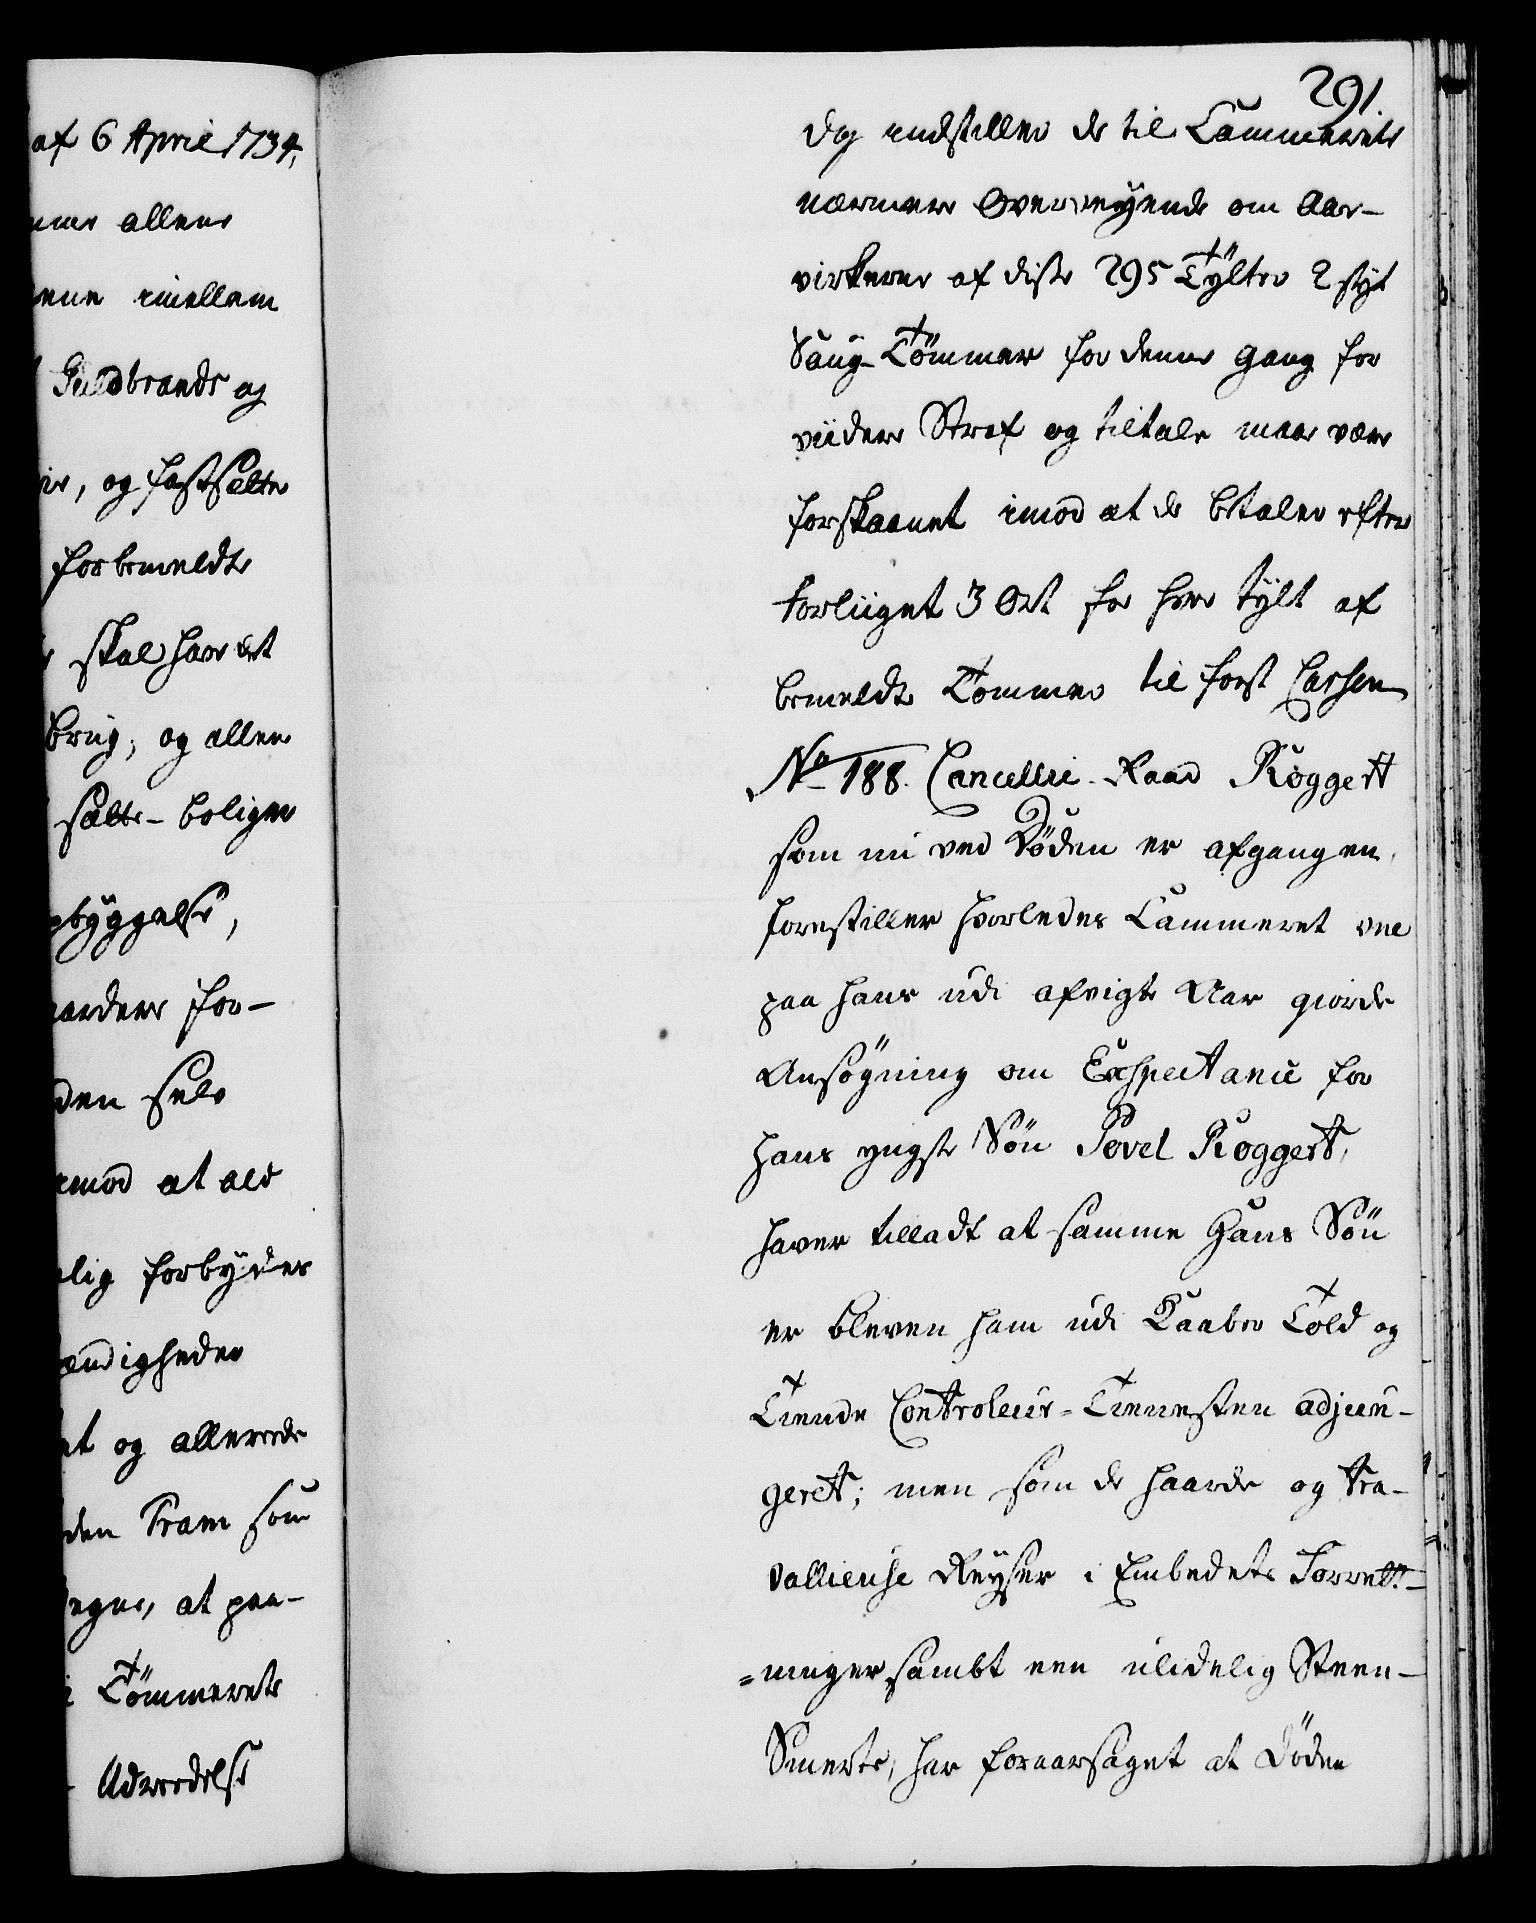 af 6 April 1734,
allene
imellem
Guldbrands og
og fastsatte
forbemeldte
skal have et
brug, og allene
satte-boliger
bÿggelse,
for-
den selv
imod at ald
lig forbÿdes
stændigheder
at og allereede
den Pram som
at paa-
Tömmerets
Udreedelse
291.
dog indstiller de til Cammerets
nærmere Overveÿende om Aar-
virkerne af disse 295 Tÿlter 2 stÿk
Saug-Tömmer for denne gang for
viidere Straf og tiltale maae være
forskaanet imod at de betaler efter
Forliiget 3 Ort for hver tÿlt af
bemeldte Tømmer til forst Cassen
No 188. Cancellie-Raad Røggert
som nu ved Döden er afgangen,
forestiller hvorledes Cammeret vel
paa hans udi afvigte Aar giorde
Ansögning om Exspectance for
hans yngste Sön Povel Røggert,
haver tilladt at samme Hans Sön
er bleven ham udi Kaaber Told og
Tiende Controleur-Tienesten adjun-
geret; men som de haarde og tra-
vallieuse Reÿser i Embedets Forrett-
=ninger sambt een ulidelig Steen-
Smerte, har foraarsaget at Döden